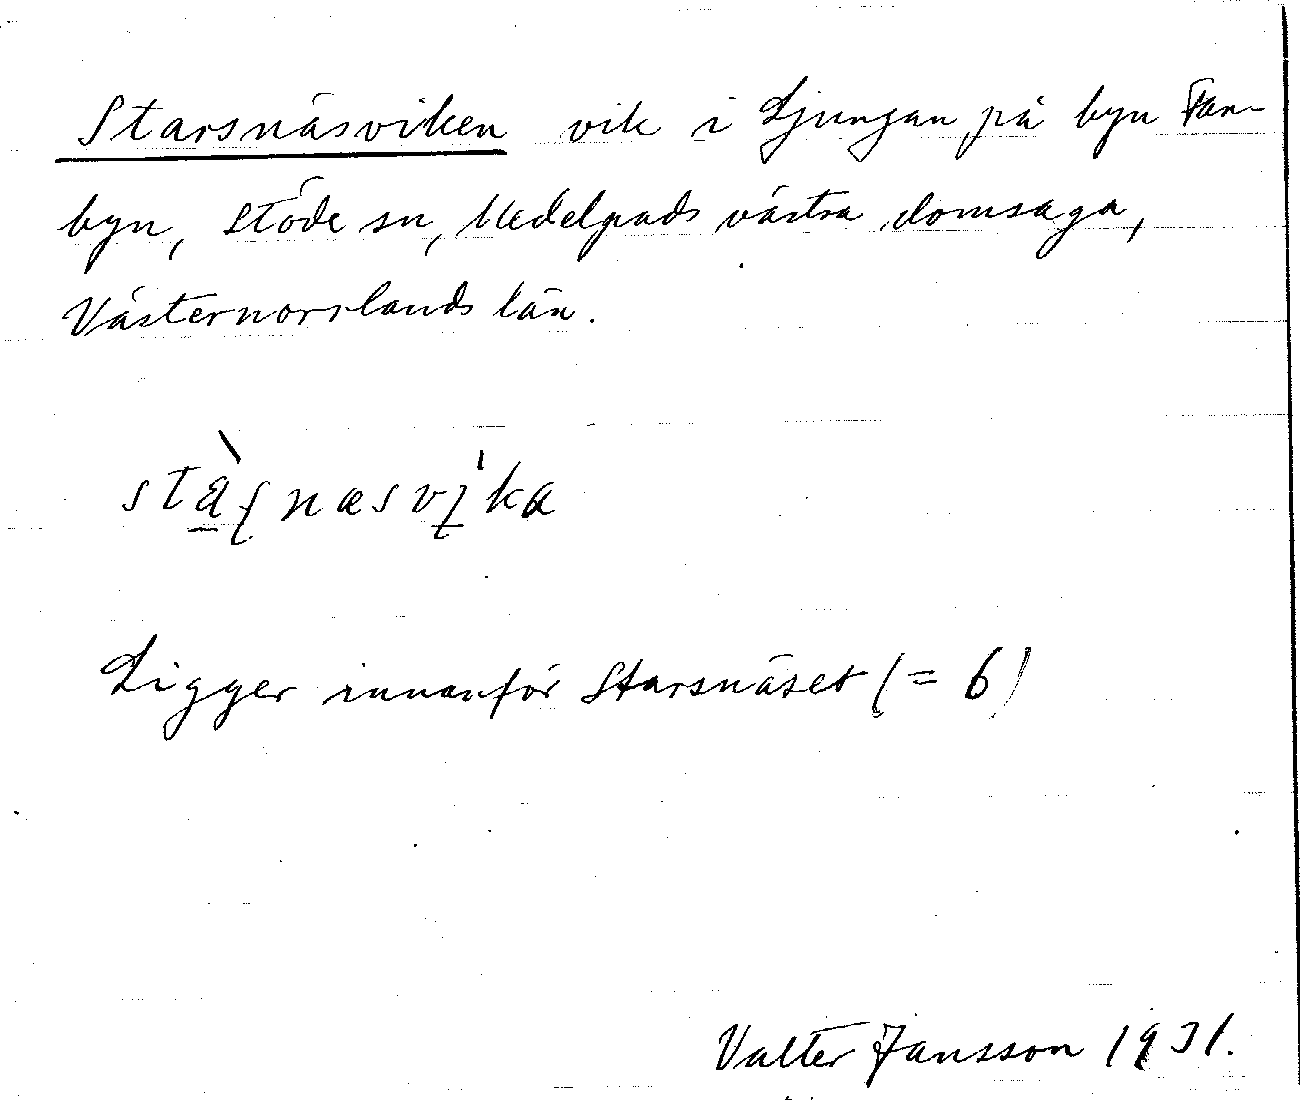 Starsnäsviken vik i Ljungan på byn Fan-
byn, Stöde sn, Medelpads västra domsaga,
Västernorrlands län.
stàʂnæsvi̱ka
Ligger innanför Starsnäset (= 6)
Valter Jansson 1931.